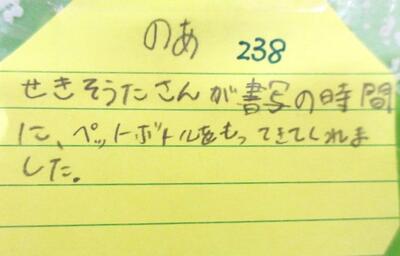 のあ 238
せきそうたさんが書写の時間
に、ペットボトルをもってきてくれま
した。